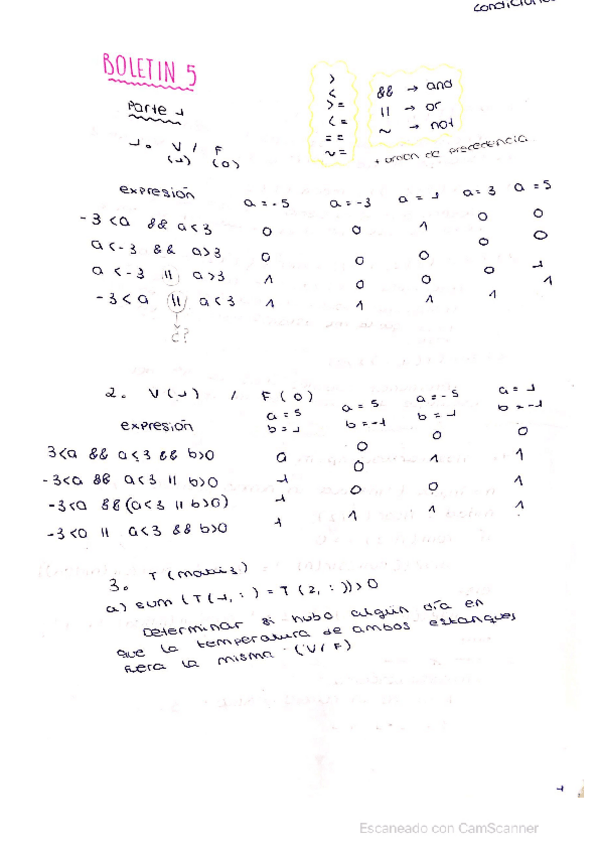 condicione
BOLETIN 5
>
<
>=
<=
==
~=
&& → and
|| → or
~ → not
+ orden de precedencia
Parte 1
1. V / F
(1) (0)
expresión a=-5 a=-3 a=1 a=3 a=5
-3<a && a<3 0 0 1 0 0
a<-3 && a>3 0 0 0 0 0
a<-3 || a>3 1 0 0 0 1
-3<a || a<3 1 1 1 1 1
¿?
2. V(1) / F(0)
expresión a=5 b=1 a=5 b=-1 a=-5 b=1 a=1 b=-1
3<a && a<3 && b>0 0 0 0 0
-3<a && a<3 || b>0 1 0 1 1
-3<a && (a<3 || b>0) 1 0 0 1
-3<a || a<3 && b>0 1 1 1 1
3. T (matriz)
a) sum (T(1,:) = T(2,:))>0
Determinar si hubo algún día en
que la temperatura de ambos estanques
fuera la misma (V/F)
1
Escaneado con CamScanner